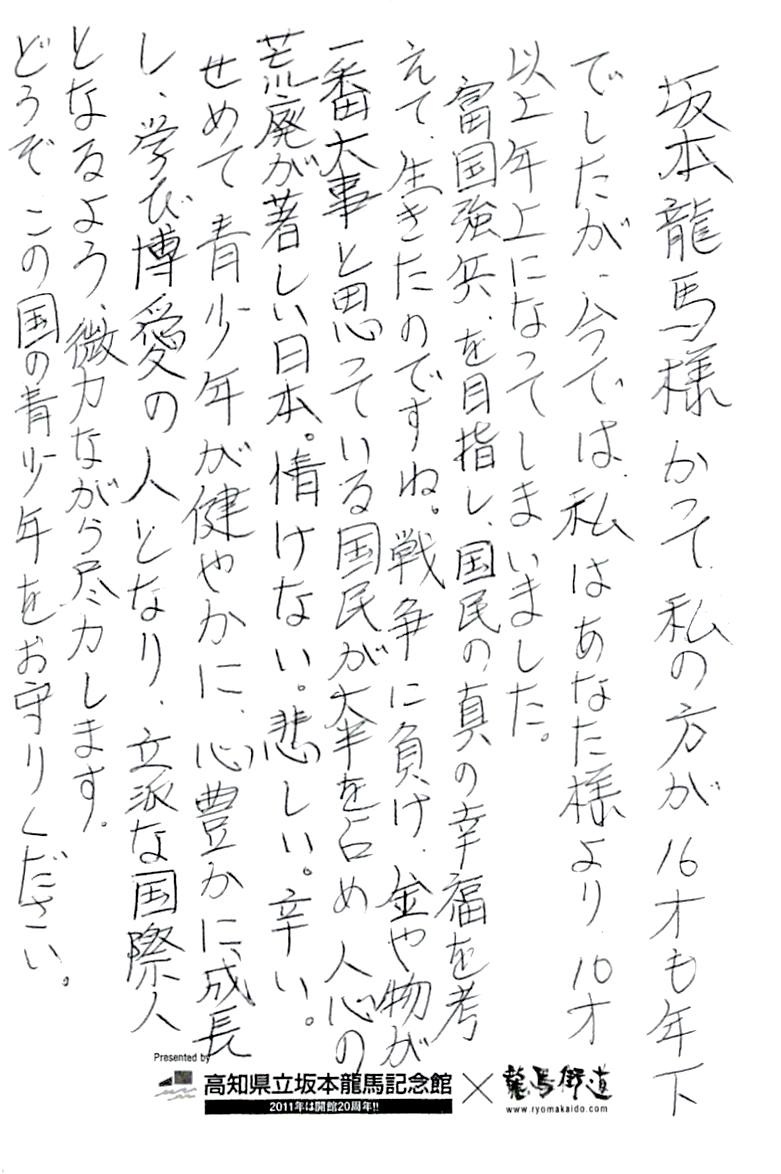 坂本龍馬様 かつて私の方が16才も年下
でしたが、今では、私はあなた様より、10才
以上年上になってしまいました。
富国強兵、を目指し、国民の真の幸福を考
えて、生きたのですね。戦争に負け、金や物が
一番大事と思っている国民が大半を占め 人心の
荒廃が著しい日本。情けない。悲しい。辛い。
せめて 青少年が健やかに、心豊かに、成長
し、学び博愛の人となり、立派な国際人
となるよう、微力ながら尽力します。
どうぞ この国の青少年をお守りください。
Presented by
高知県立坂本龍馬記念館 × 龍馬街道
2011年は開館20周年!!
www.ryomakaido.com